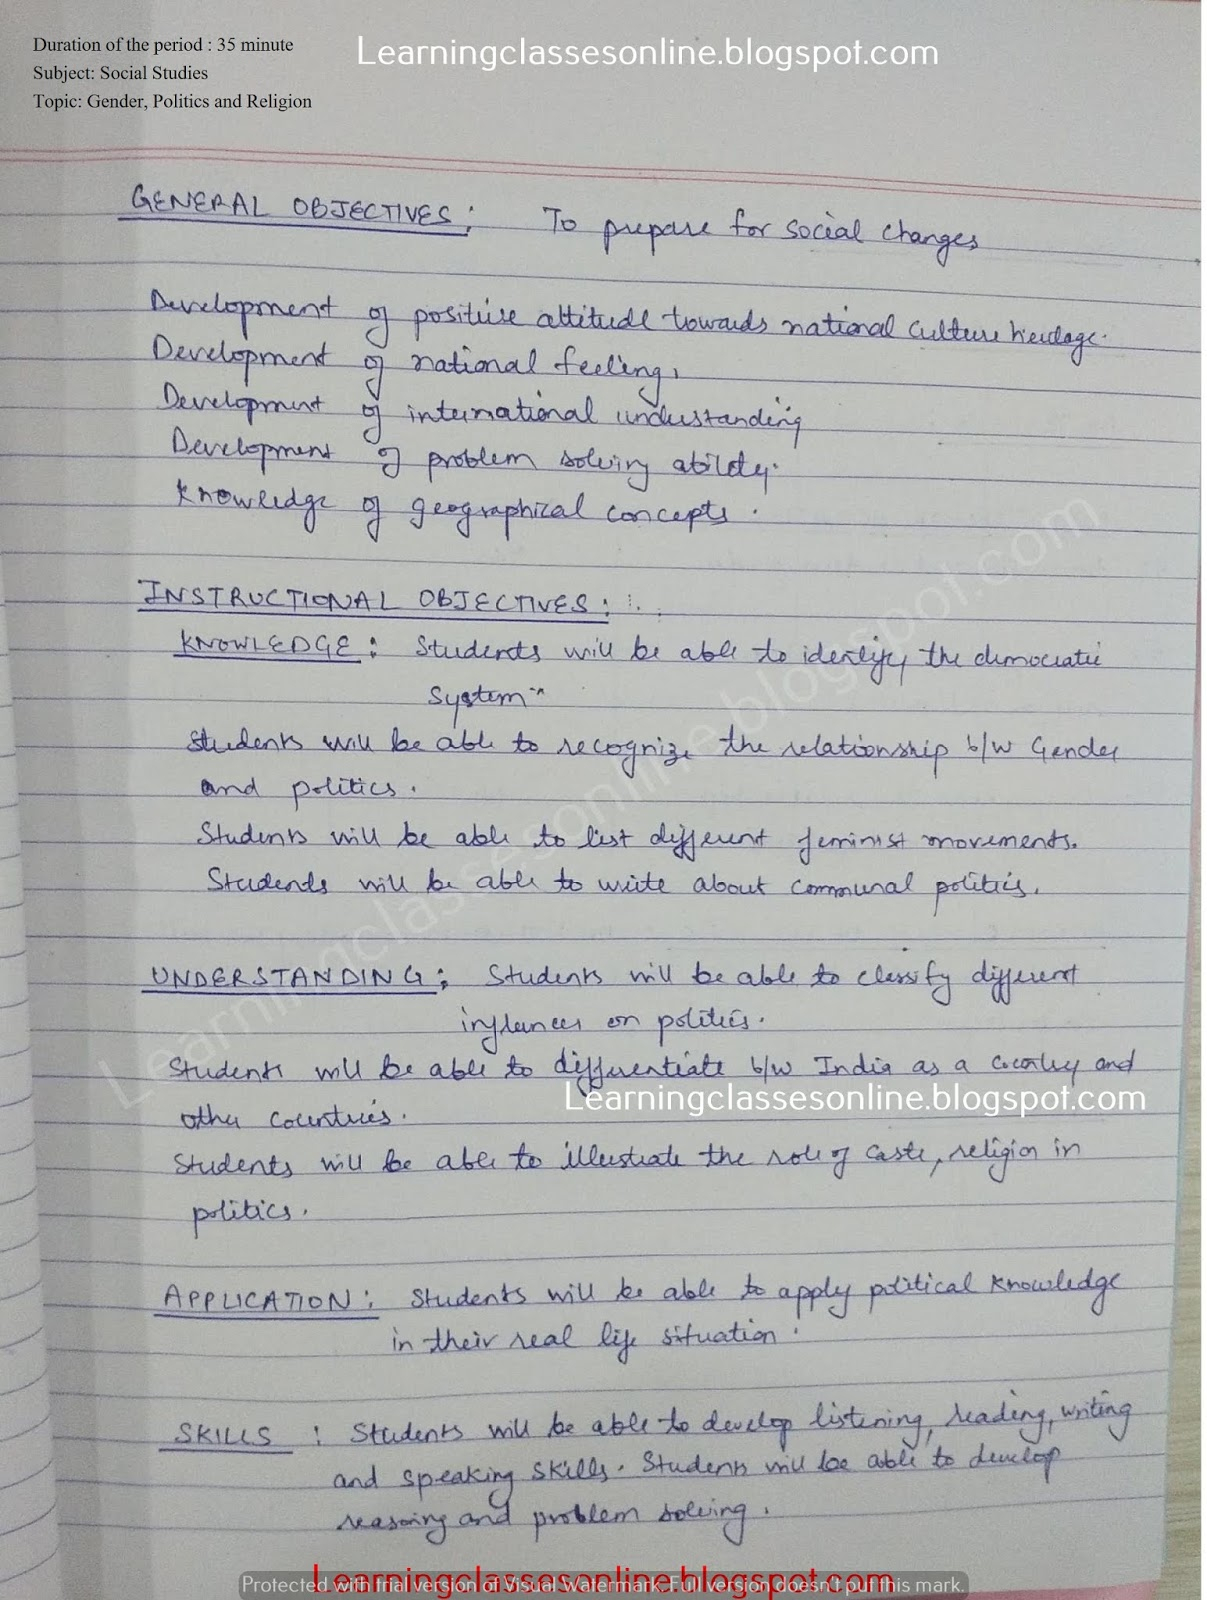 Duration of the period : 35 minute
Learningclassesonline.blogspot.com
Subject: Social Studies
Topic: Gender, Politics and Religion
GENERAL OBJECTIVES; To prepare for social changes
Development of positive attitude towards national culture heritage.
Development of national feeling,
Development of international understanding
Development of problem solving ability.
Knowledge of geographical concepts.
INSTRUCTIONAL OBJECTIVES:
KNOWLEDGE: Students will be able to identify the democratic
System
Students will be able to recognize the relationship b/w Gender
and politics.
Students will be able to list different feminist movements.
Students will be able to write about communal politics.
UNDERSTANDING: Students will be able to classify different
influences on politics.
Students will be able to differentiate b/w India as a country and
Learningclassesonline.blogspot.com
other countries.
Students will be able to illustrate the role of caste, religion in
politics.
APPLICATION: Students will be able to apply political knowledge
in their real life situation.
SKILLS : Students will be able to develop listening, reading, writing
and speaking skills. Students will be able to develop
reasoning and problem solving.
Learningclassesonline.blogspot.com
Learningclassesonline.blogspot.com
Protected with trial version of Visual Watermark. Full version doesn't put this mark.